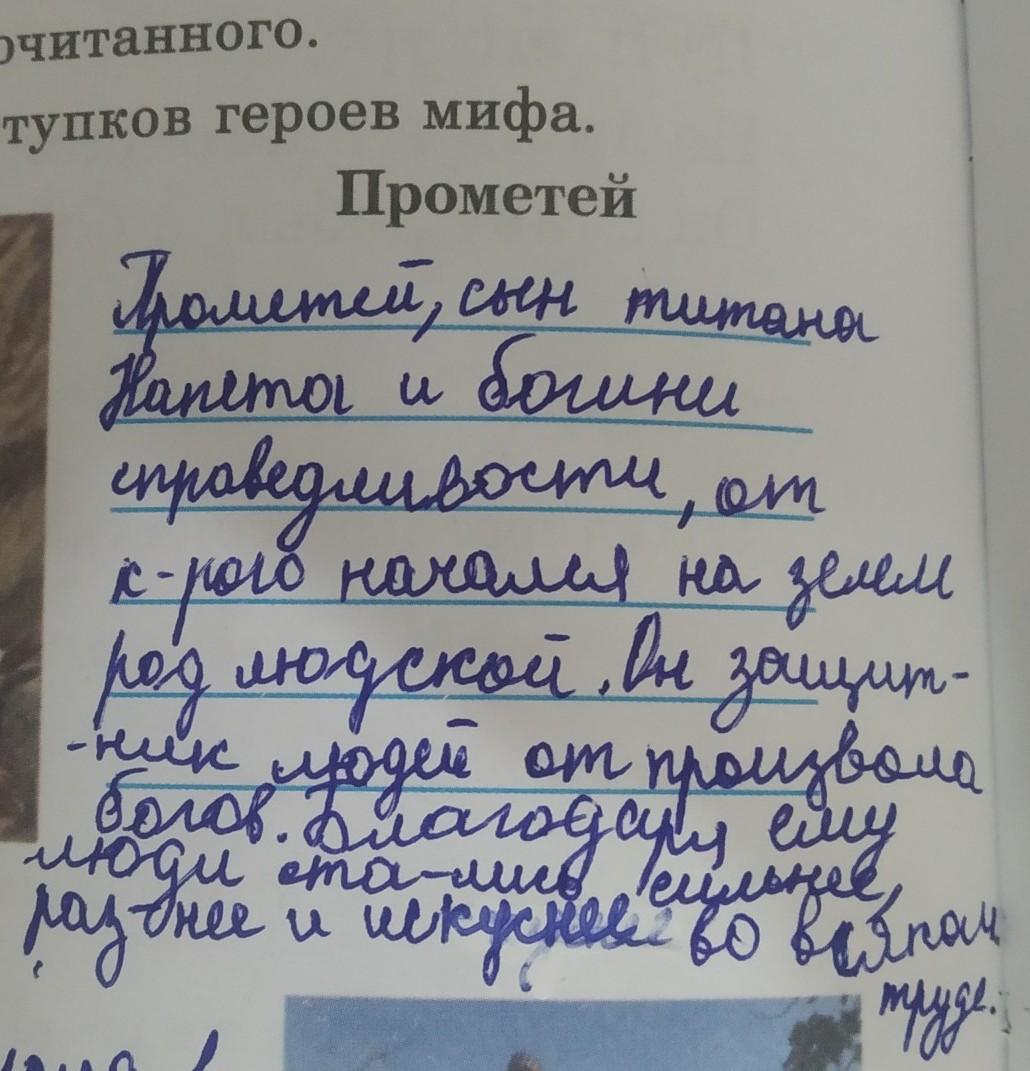 очитанного.
тупков героев мифа.
Прометей
Прометей, сын титана
Напета и богини
справедливости, от
к-рого начался на земле
род людской. Он защит-
-ник людей от произвола
богов. Благодаря ему
люди ста-лись сильнее,
раз-нее и искуснее во всяком
труде.